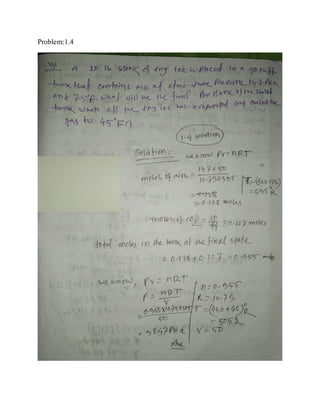 Problem:1.4
A 10 lb block of dry ice is placed in a 50 cuft
tank that contains air at atmospheric pressure 14.7 psia
and 75°F. What will be the final pressure of the sealed
tank when all the dry ice has evaporated and cooled the
gas to 45°F?
1.4 solution
Solution: we know PV = nRT
moles of air = 14.7 x 50 / 10.73 x 535
= 0.128 moles
moles of CO2 = 10/44 = 0.227 moles
total moles in the tank at the final state
= 0.128 + 0.227 = 0.355 moles
we know, PV = nRT
P = nRT / V
50
n = 0.355
R = 10.73
T = (460+45)°R
= 505°R
V = 50
Ans